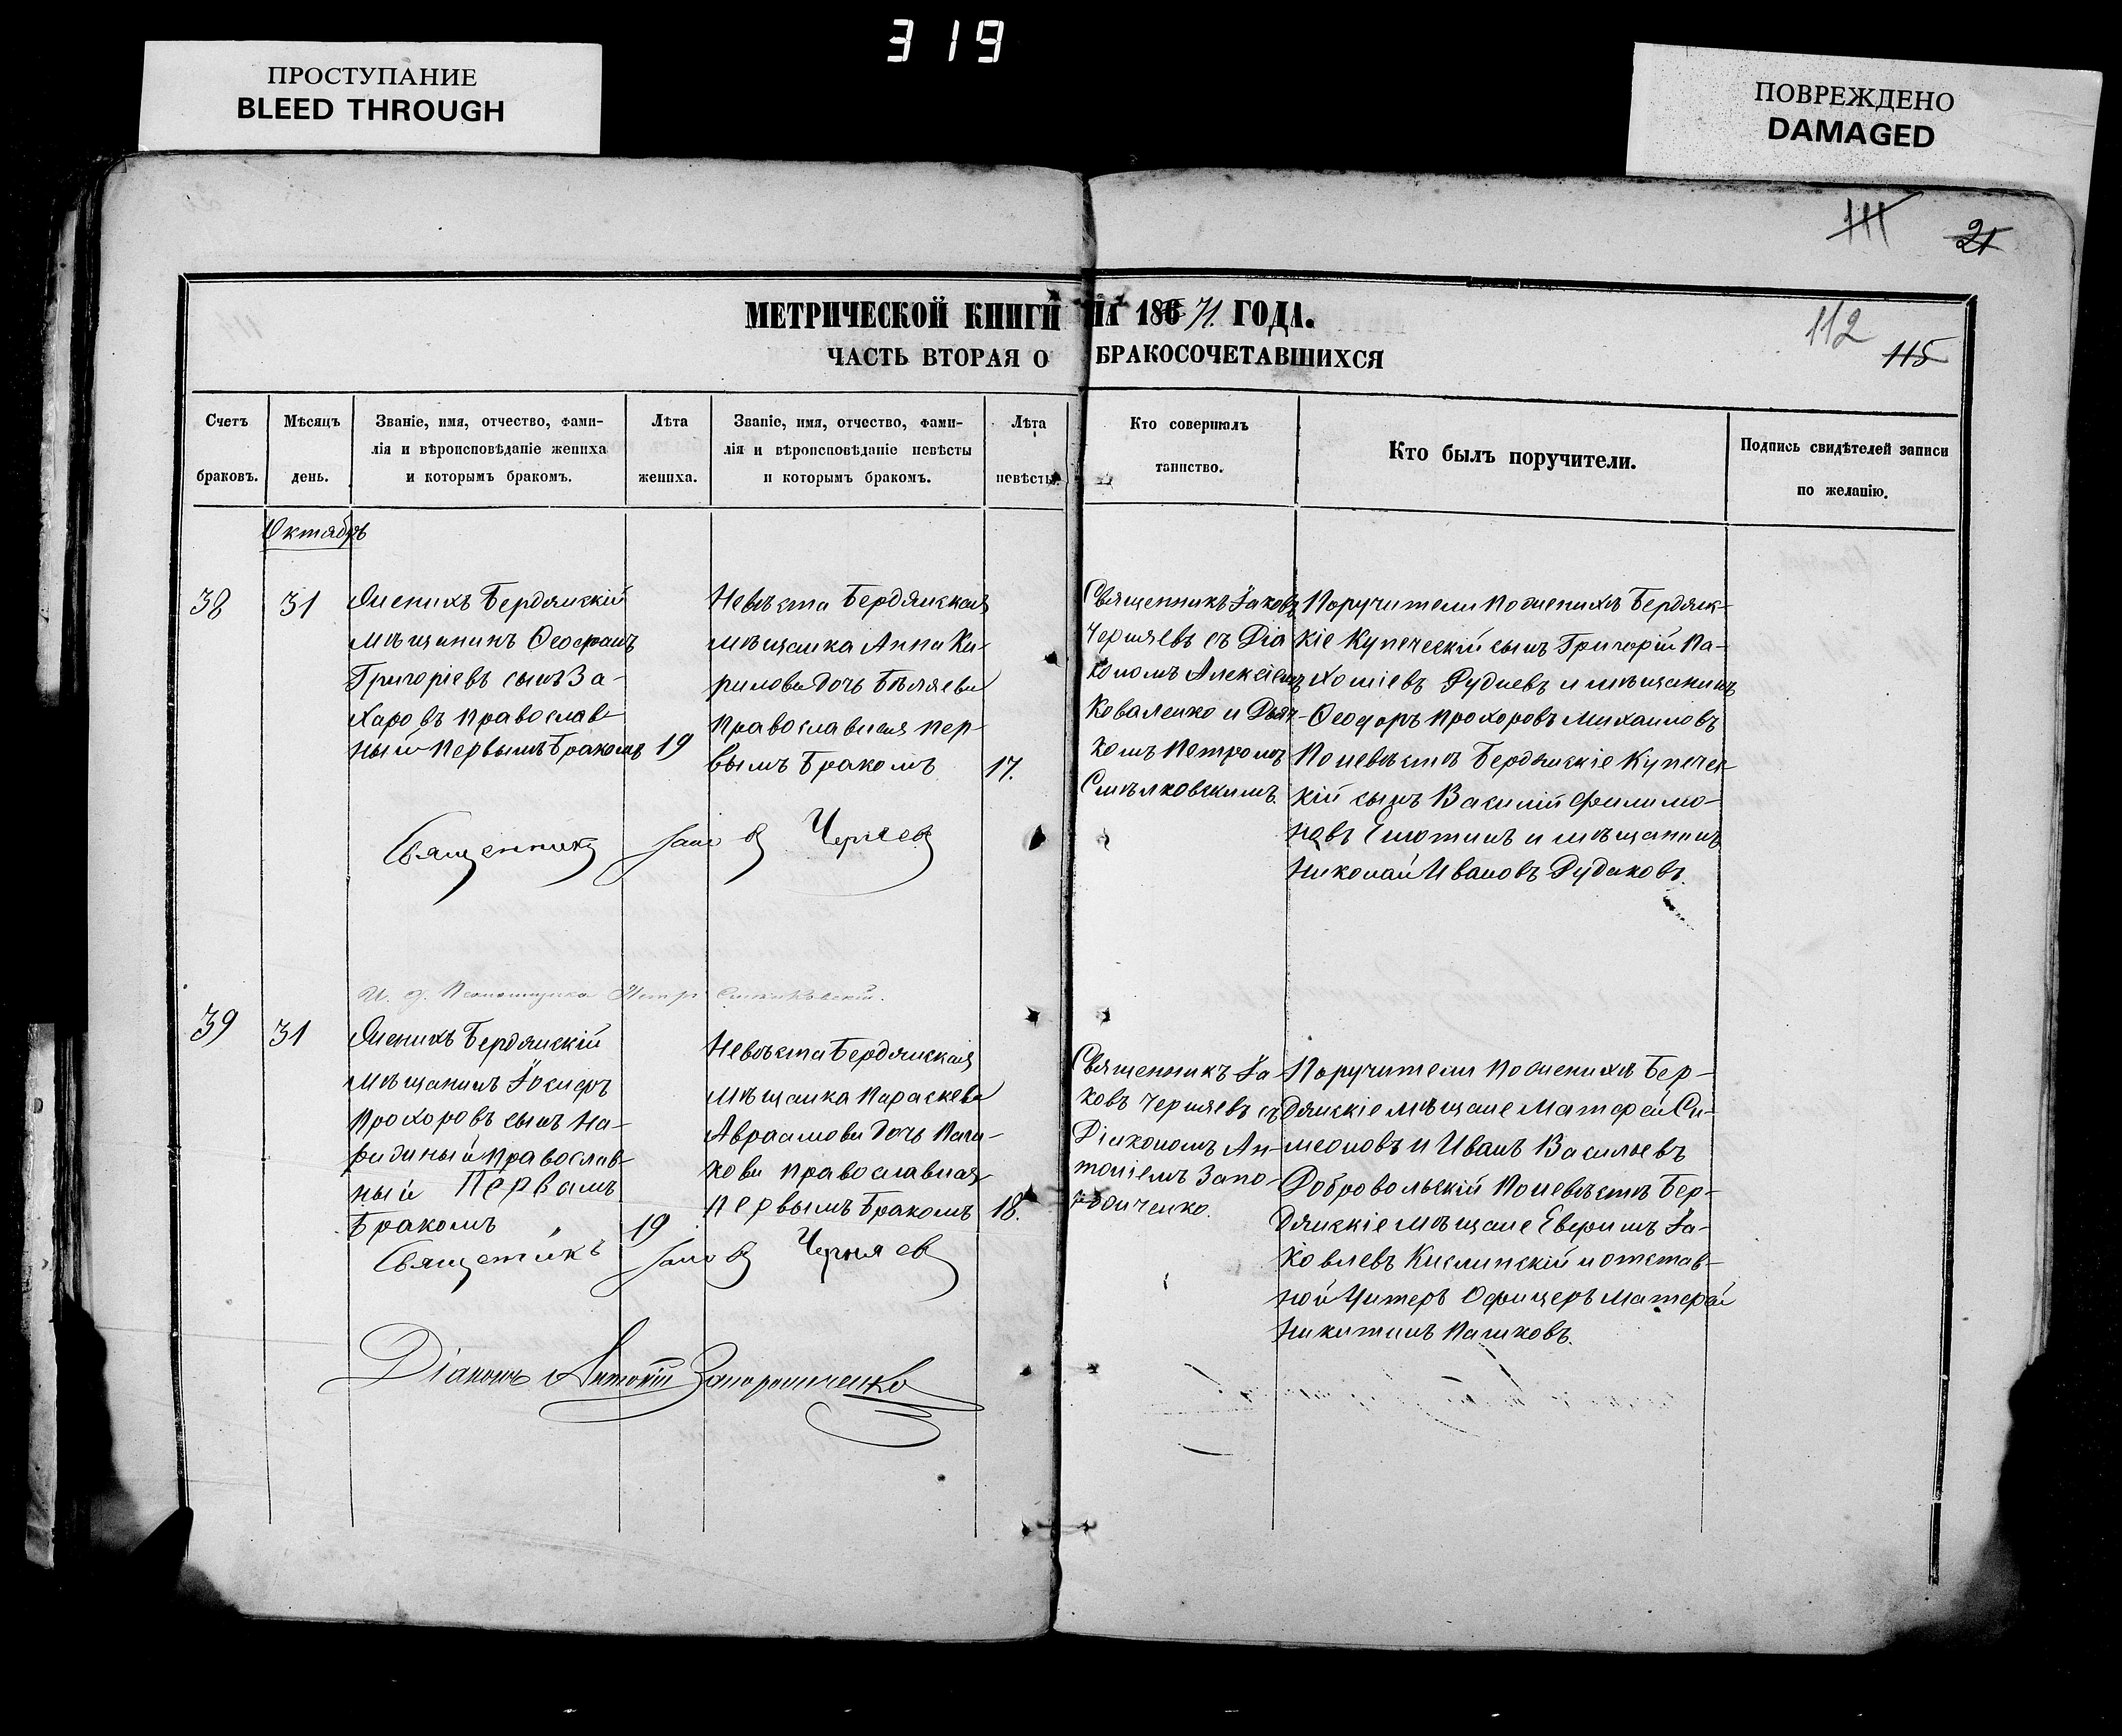 319
ПРОСТУПАНИЕ
BLEED THROUGH
ПОВРЕЖДЕНО
DAMAGED
111
21
МЕТРИЧЕСКОЙ КНИГИ НА 186 71. ГОДА.
112
115
ЧАСТЬ ВТОРАЯ О БРАКОСОЧЕТАВШИХСЯ
Счетъ
браковъ.
Мѣсяцъ
день.
Званіе, имя, отчество, фами-
лія и вѣроисповѣданіе жениха
и которымъ бракомъ.
Лѣта
жениха.
Званіе, имя, отчество, фами-
лія и вѣроисповѣданіе невѣсты
и которымъ бракомъ.
Лѣта
невѣсты.
Кто совершалъ
таинство.
Кто былъ поручители.
Подпись свидѣтелей записи
по желанію.
Октябрь
38
31
Женихъ Бердянскій
мѣщанинъ Ѳеофанъ
Григоріевъ сынъ За-
харовъ православ-
ный Первымъ бракомъ
19
Невѣста Бердянская
мѣщанка Анна Ки-
рилова дочь Бѣляева
Православная пер-
вымъ бракомъ
17.
Священникъ Іаковъ
Черняевъ съ Діа
кономъ Алексіемъ
Коваленко и Дьяч-
комъ Петромъ
Смѣлковскимъ.
Поручители по женихѣ Бердянс-
кіе Купеческій сынъ Григорій Па-
хоміевъ Рудневъ и мѣщанинъ
Ѳеодоръ Прохоровъ Михаиловъ
По невѣстѣ Бердянскіе Купечес-
кій сынъ Василій Филимо-
новъ и мѣщанинъ
Николай Ивановъ Рудаковъ.
Священникъ Іаковъ Черняевъ
И. д. Псаломщика Петръ
39
31
Женихъ Бердянскій
мѣщанинъ Іосифъ
Прохоровъ сынъ На-
православ-
ный Первымъ
Бракомъ
19
Невѣста Бердянская
мѣщанка Параскева
Авраамова дочь Паш-
кова православная
Первымъ бракомъ
18.
Священникъ Іа-
ковъ Черняевъ съ
Діакономъ Ан-
тоніемъ Запо-
Поручители по женихѣ Бер-
дянскіе мѣщане Матфей Си-
меоновъ и Иванъ Васильевъ
Добровольскій По невѣстѣ Бер-
дянскіе мѣщане Ефимъ Іа-
ковлевъ Кислинскій и отстав-
ной Унтеръ Офицеръ Матфей
Никитинъ Пашковъ.
Священникъ Іаковъ Черняевъ
Діаконъ Антоній Запорошченко